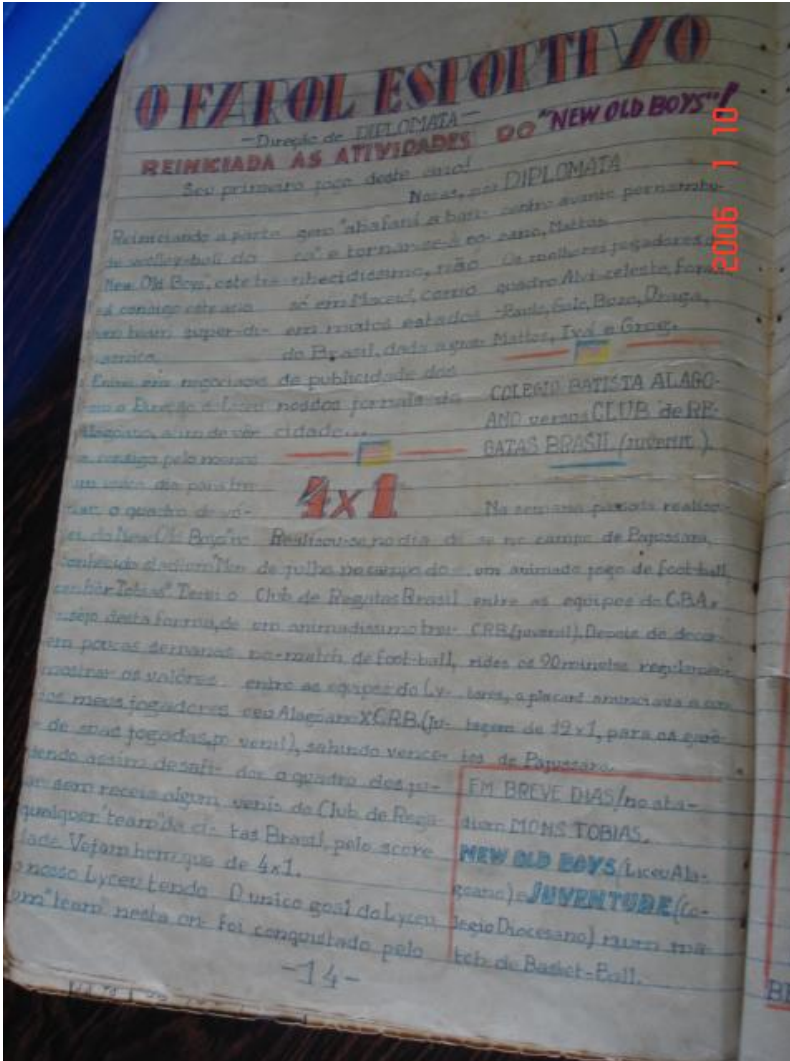 O FAROL ESPORTIVO
-Direção de DIPLOMATA-
REINICIADA AS ATIVIDADES DO "NEW OLD BOYS"!
Seu primeiro jogo deste ano!
Notas, por DIPLOMATA
Reiniciando a parte
de wolley-ball do
New Old Boys", este
consigo este ano
um team super-di-
namico.
Entrei em negociações
com a Direção do Liceu
Alagoano, a fim de vêr
se consigo pelo menos
o quadro de vô-
lei do New Old Boys" no
conhecido stadium "Mon
senhôr Tobias". Terei o
desta forma, de
em poucas semanas
mostrar os valôres
dos meus jogadores
de suas jogadas, po
dendo assim desafi-
ar sem receio algum
qualquer "team" da ci-
dade. Vejam bem que
o nosso Lyceu tendo
um "team" nesta or-
gem "abafará a ban-
ca" e tornar-se-á co-
nhecidissimo, não
só em Maceió, como
em muitos estados
do Brasil, dada a gran
de publicidade dos
nossos jornais da
cidade...
4x1
Realizou-se no dia
de julho no campo do
Club de Regatas Brasil
um animadissimo trei-
no-match de foot-ball,
entre as equipes do Ly-
ceu Alagôano X CRB. (ju-
venil), sahindo vence-
dor o quadro dos ju-
venis do Club de Rega-
tas Brasil, pelo score
de 4x1.
O unico goal do Lyceu
foi conquistado pelo
centro avante pernambu-
cano, Mattos.
Os melhores jogadores do
quadro Alvi-celeste, foram
-Paulo, Guic, Bozo, Braga,
Mattos, Ivá e Grog.
COLEGIO BATISTA ALAGO-
ANO versus CLUB de RE-
GATAS BRASIL (juvenil).
Na semana passada realisou-
se no campo de Pajussara,
um animado jogo de foot-ball,
entre as equipes do CBA x
CRB (juvenil). Depois de decor-
ridos os 90 minutos regulamen-
tares, o placard anunciava a con-
tagem de 12x1, para os garô-
tos de Pajussara.
EM BREVE DIAS/no sta-
dium MONS. TOBIAS.
NEW OLD BOYS (Liceu Ala-
goano) e JUVENTUDE (Co-
legio Diocesano) num ma-
tch de Basket-Ball.
-14-
2006 1 10